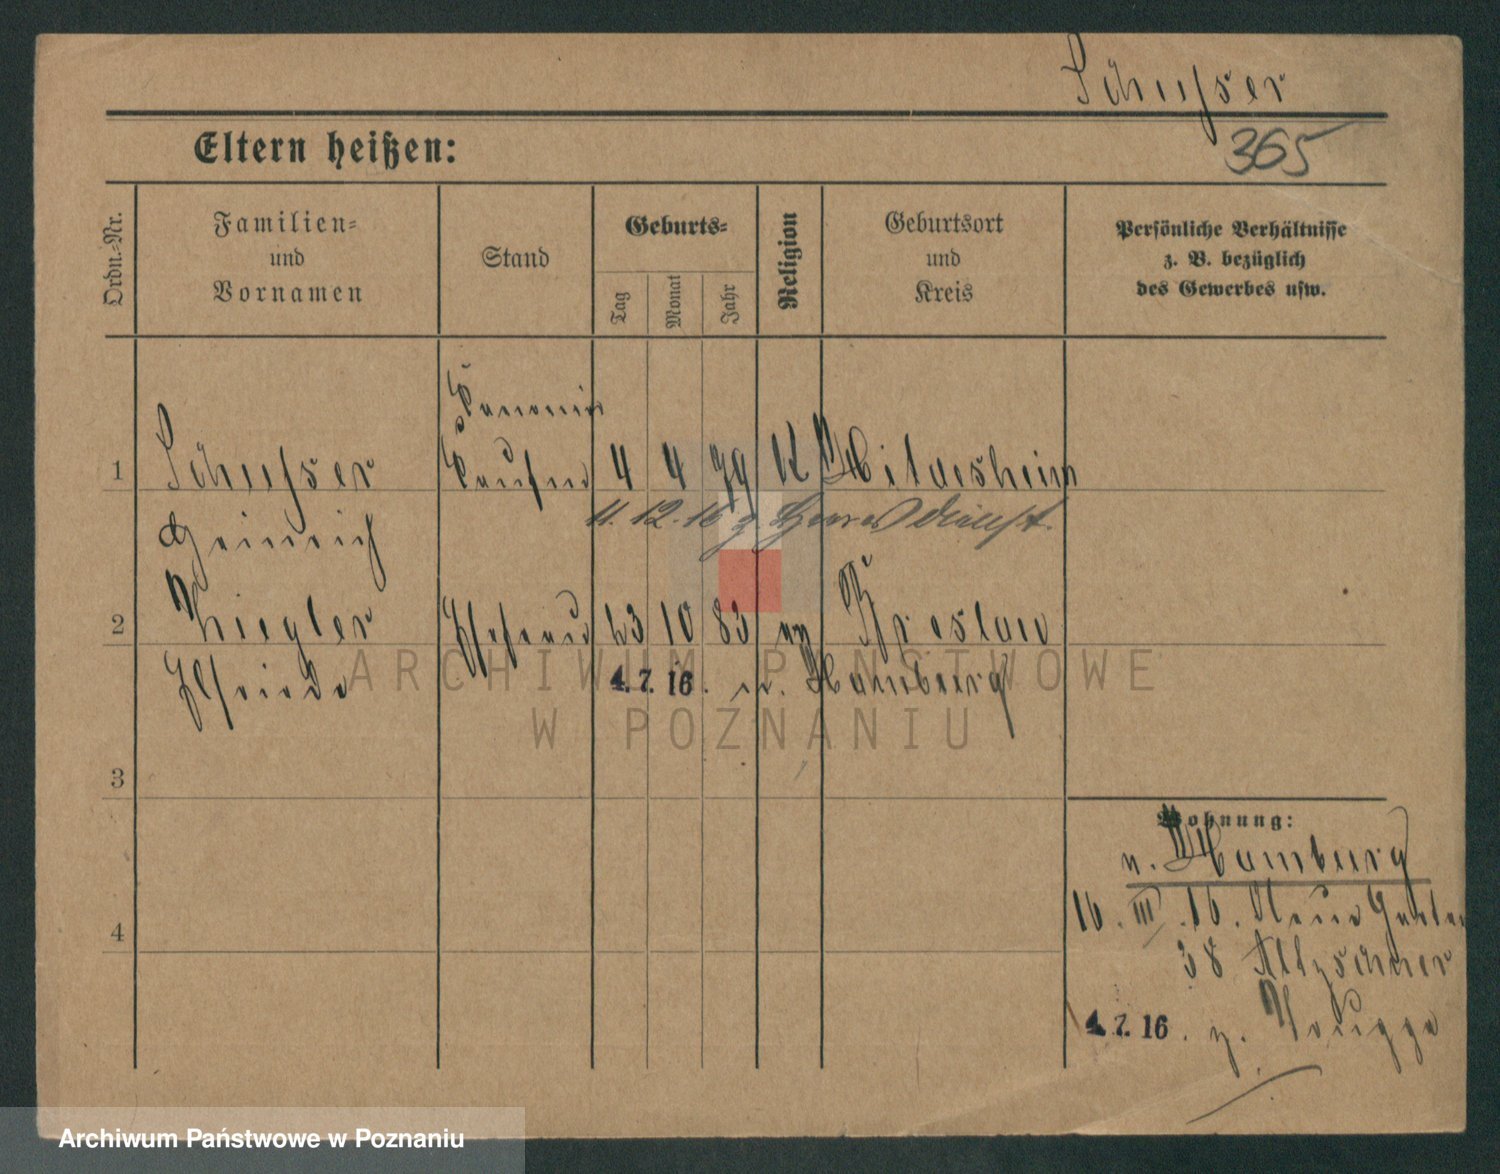 Schusser
365
Eltern heißen:
Ordn.=Nr.
Familien=
und
Vornamen
Stand
Geburts=
Tag
Monat
Jahr
Religion
Geburtsort
und
Kreis
Persönliche Verhältnisse
z. B. bezüglich
des Gewerbes usw.
1 Schusser Kaufm 4 4 79 K Hildesheim
Heinrich 11. 12. 16 z. Heeresdienst.
2 Ziegler Ehefrau 23 10 83 ev Breslau
Elfriede 4. 7. 16. n. Hamburg
3
4
Wohnung:
n. Hamburg
16. III. 16. Neue Garten
38
4. 7. 16. z.
ARCHIWUM PAŃSTWOWE
W POZNANIU
Archiwum Państwowe w Poznaniu